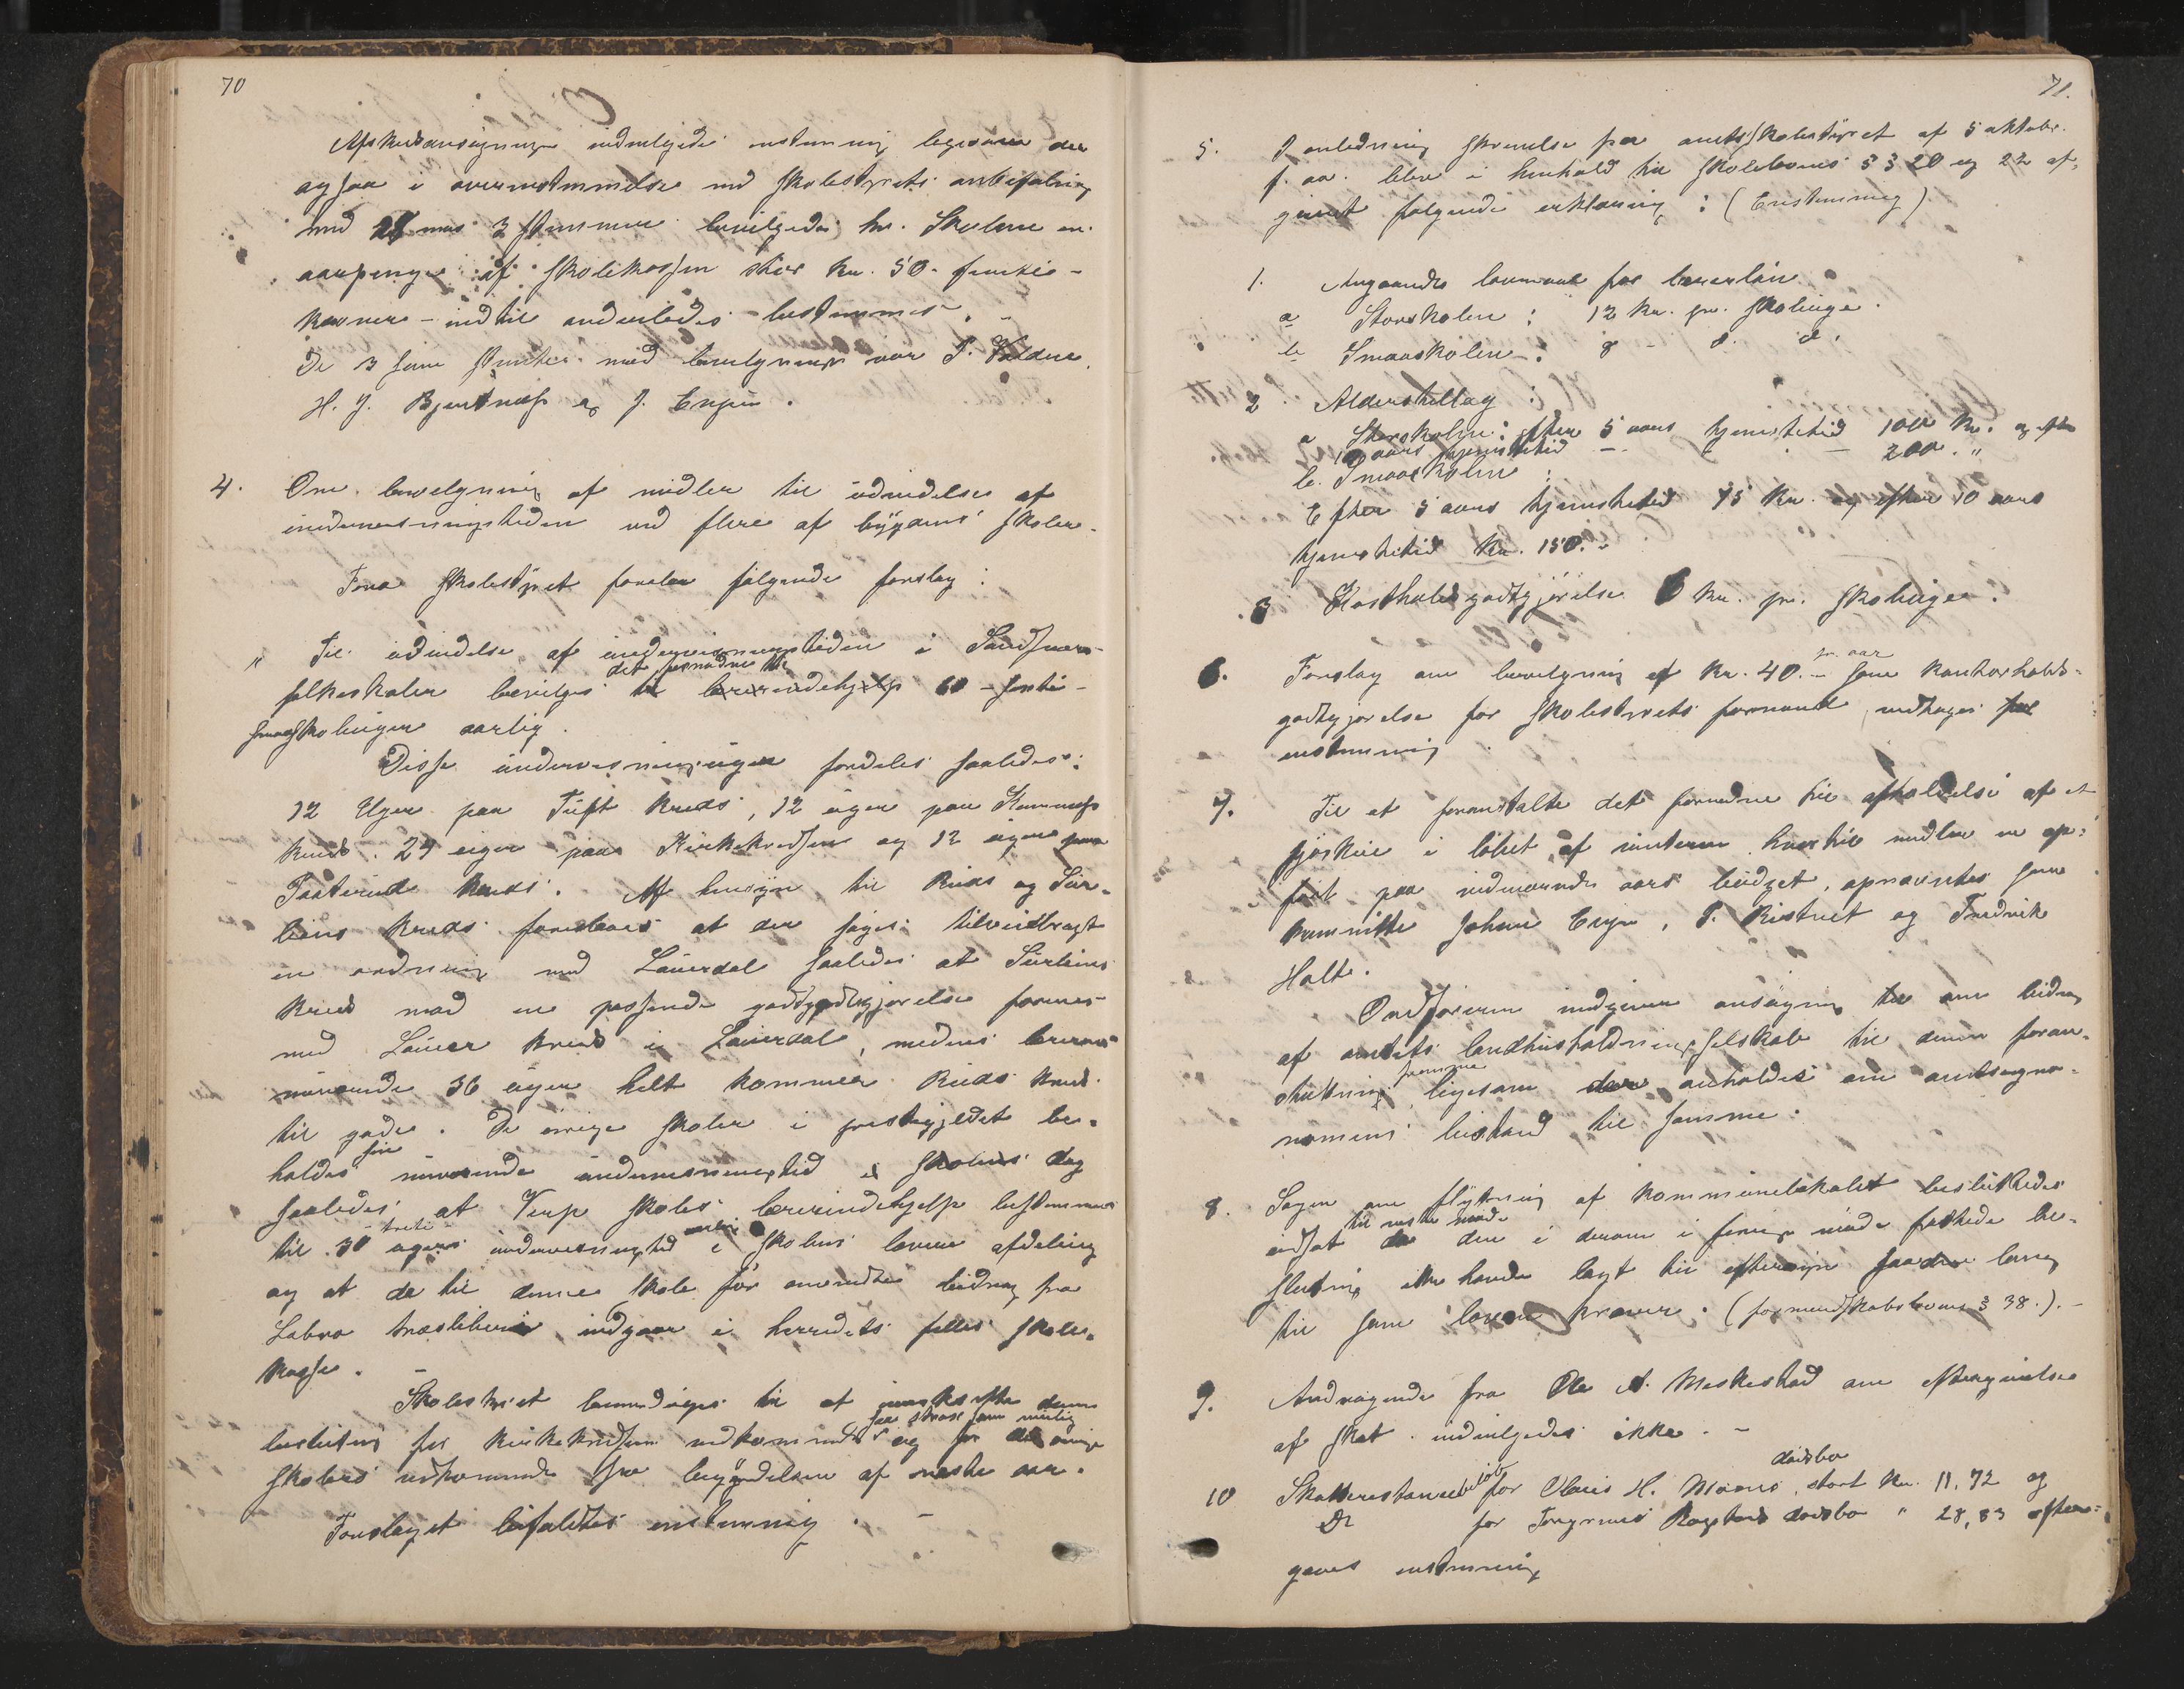 70
Afskedsansøgningen indvilgedes enstemmig ligesom der
ogsaa i overensstemmelse med skolestyrets anbefaling
med 21 mod 3 stemmer bevilgedes hr. Skolme en
aarpenge af skolekassen stor kr. 50 - femti -
kroner - indtil anderledes bestemmes. -
De 3 som stemte mod bevilgningen var T.
H. J. Bjertnæss og J. Engen.
4. Om bevilgning af midler til udvidelse af
undervisningstiden ved flere af bygdens skoler.
Fra skolestyret forelaa følgende forslag:
" Til udvidelse af undervisningstiden i Sandsvær
det fornødne til
folkeskoler bevilges til lærerindehjelp 60 - seksti -
smaaskoleuger aarlig.
Disse undervisningsuger fordeles saaledes:
12 Uger paa Tuft kreds, 12 uger paa
kreds. 24 uger paa Kirkekredsen og 12 uger paa
kreds. Af hensyn til Ruds og
kreds foreslaaes at der søges tilveiebragt
en ordning med Lauerdal saaledes at
kreds mod en passende godtgjørelse forenes
med Lauer kreds i Lauerdal, medens lærerens
nuværende 36 uger helt kommer Ruds kreds
til gode. De øvrige skoler i prestegjeldet be-
sin
holder nuværende undervisningstid
saaledes at skoles lærerindehjelp bestemmes
- treti -
til 30 ugers undervisningstid i skolens lavere afdeling
og at de til denne skole før anvendte bidrag fra
Labro træsliberi indgaar i herredets fælles skole-
kasse. -
Skolestyret bemyndiges til at iverksætte denne
saa snart som mulig
beslutning for kirkekredsen vedkommende og for de øvrige
skoles vedkommende fra begyndelsen af næste aar.
Forslaget bifaldtes enstemmig. -
71.
5. I anledning skrivelse fra amtsskolestyret af 5 oktober
f. aa. blev i henhold til skolelovens §§ 20 og 22 af-
givet følgende erklæring: (Enstemmig)
1. Angaaende lønninger for lærerløn
a Storskolen: 12 kr. pr. skoleuge.
b Smaaskolen: 8 - d. d.
2 Alderstillæg:
a Storskolen: efter 5 aars tjenestetid 100 kr. og efter
10 aars tjenestetid - 200. "
b. Smaaskolen:
Efter 5 aars tjenestetid 75 kr. og efter 10 aars
tjenestetid kr. 150. -
3 Kostholdsgodtgjørelse 6 kr. pr. skoleuge.
pr. aar
6. Forslag om bevilgning af kr. 40. - som kontorholds-
godtgjørelse for skolestyrets formand vedtoges
enstemmig.
7. Til at foranstalte det fornødne til afholdelse af et
fjøsskue i løbet af vinteren hvortil midler er op-
ført paa indeværende aars budget, opnævntes som
kommitte Johan Engen, P. og Fredrik
Holte.
Ordføreren indgiver ansøgning om bidrag
af amtets landhusholdningsselskab til denne foran-
fremme
staltning ligesom der anholdes om amtsagro-
nomens bistand til samme.
8. Sagen om flytning af kommunelokalet besluttedes
til næste møde
udsat da den i denne i forrige møde fattede be-
slutning ikke havde lagt til eftersyn saa lang
tid som loven kræver. (formandskabslovens § 38.). -
9. Andragende fra Ole A. Meskestad om eftergivelse
af skat indvilgedes ikke. -
dødsbo
10 Skatterestancebeløb for Claus H. Moens, stort kr. 11,72 og
Do for dødsbo " 28,83 efter-
gaves enstemmig